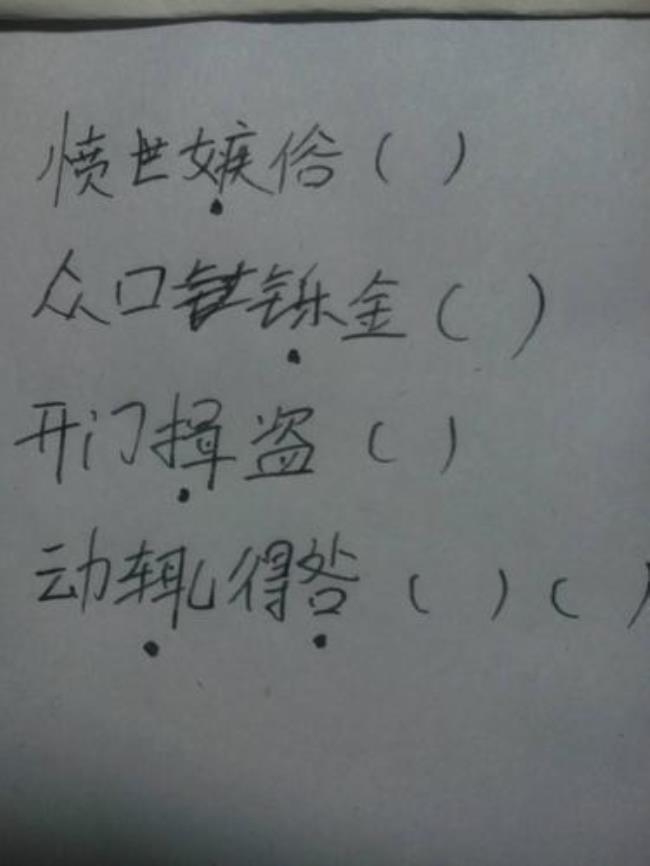 愤世嫉俗（ ）
众口铄金（ ）
开门揖盗（ ）
动辄得咎（ ）（ ）